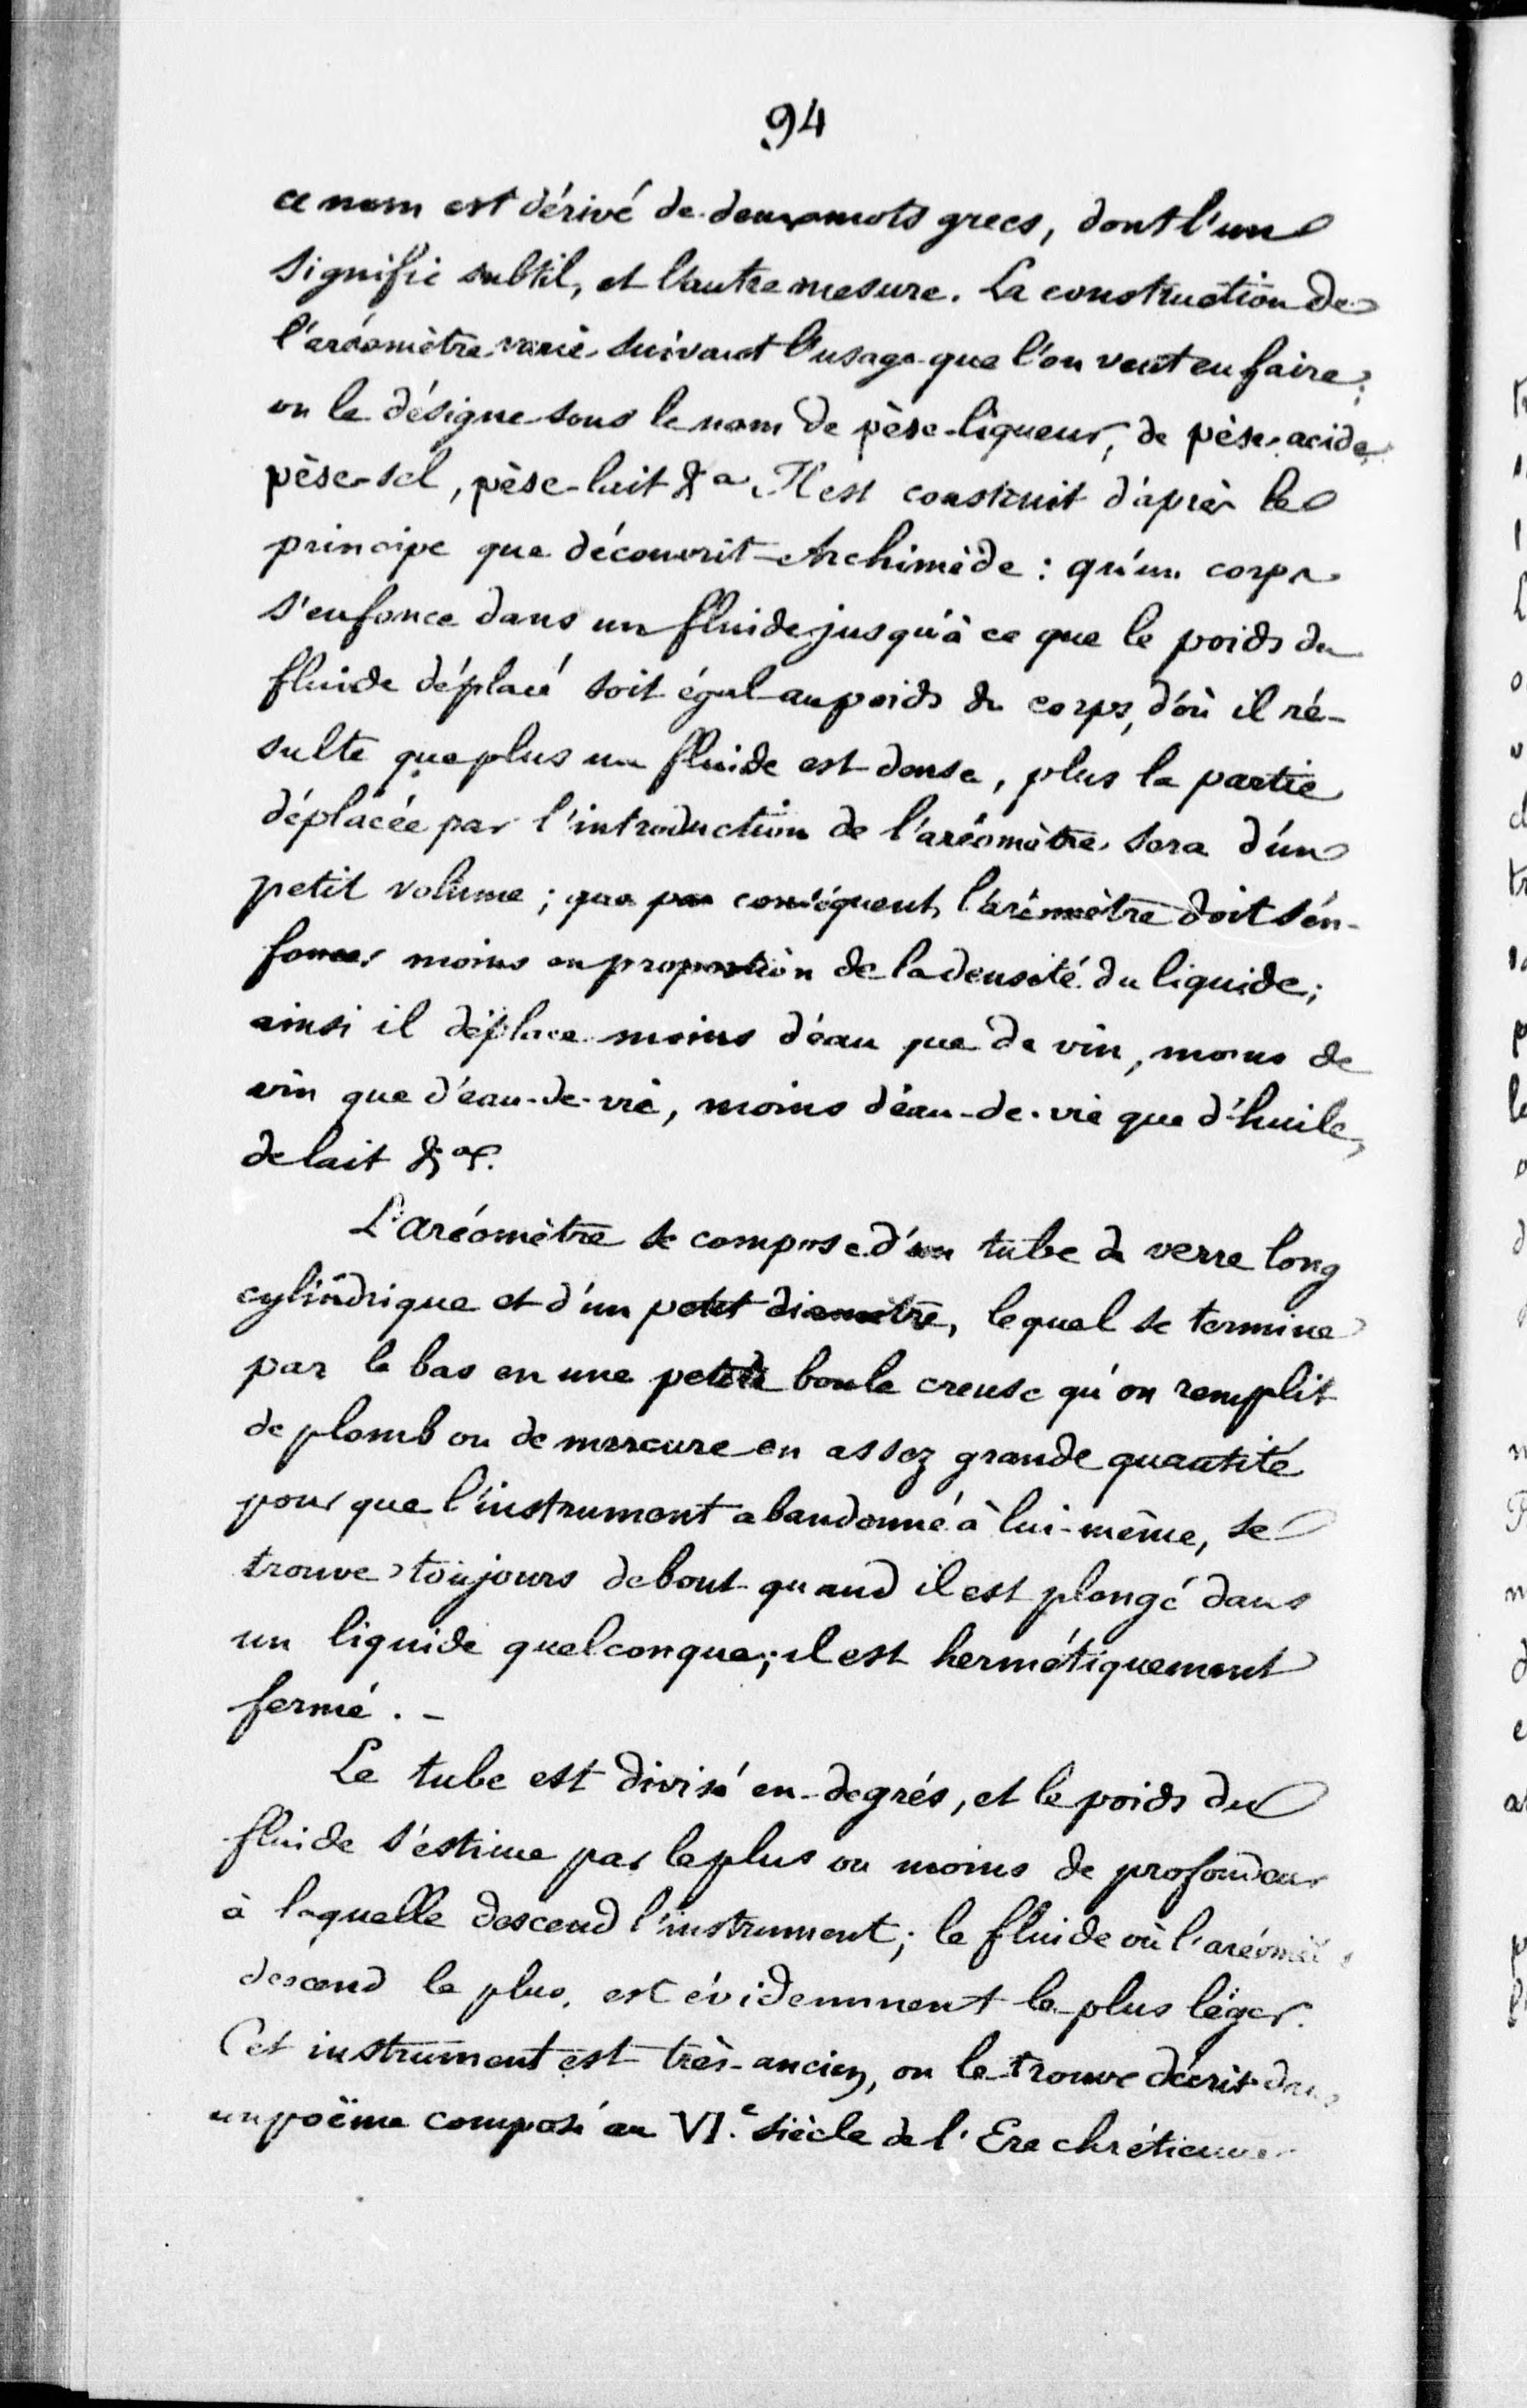 94
ce nom est dérivé de deux mots grecs, dont l'un
signifie subtil, et l'autre mesure. La construction de
l'aréomètre varie suivant l'usage que l'on veut en faire;
on le désigne sous le nom de pèse-liqueur, de pèse-acide,
pèse-sel, pèse-lait &a. Il est construit d'après le
principe que découvrit Archimède : qu'un corps
s'enfonce dans un fluide jusqu'à ce que le poids du
fluide déplacé soit égal au poids du corps, d'où il ré-
sulte que plus un fluide est dense, plus la partie
déplacée par l'introduction de l'aréomètre sera d'un
petit volume ; que par conséquent, l'arèmètre doit s'en-
foncer moins en proportion de la densité du liquide ;
ainsi il déplace moins d'eau que de vin, moins de
vin que d'eau-de-vie, moins d'eau-de-vie que d'huile,
de lait &a.
L'aréomètre se compose d'un tube de verre long
cylindrique et d'un petit diamètre, lequel se termine
par le bas en une petite boule creuse qu'on remplit
de plomb ou de mercure en assez grande quantité
pour que l'instrument abandonné à lui-même, se
trouve toujours debout quand il est plongé dans
un liquide quelconque ; il est hermétiquement
fermé. -
Le tube est divisé en degrés, et le poids du
fluide s'estime par le plus ou moins de profondeur
à laquelle descend l'instrument ; le fluide où l'aréomèt
descend le plus, est évidemment le plus léger.
Cet instrument est très-ancien, on le trouve décrit dans
un poëme composé au VI.e siècle de l'Ere chrétienne